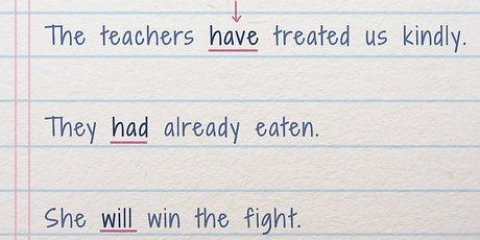 The teachers have treated us kindly.
They had already eaten.
She will win the fight.